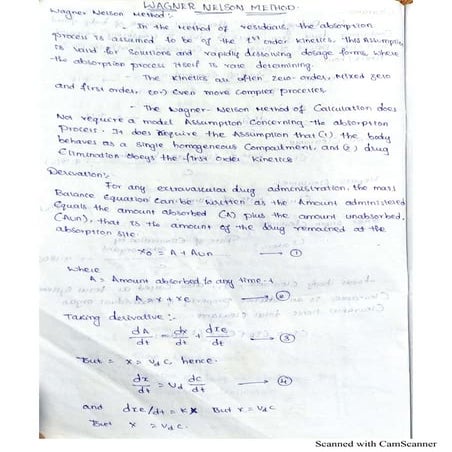 WAGNER NELSON METHOD.
Wagner Nelson Method:-
In the Method of residuals, the absorption
process is assumed to be of the 1st order kinetics. This Assumption
is valid for solutions and rapidly dissolving dosage forms, where
the absorption process itself is rate determining.
- The kinetics are often zero-order, Mixed zero
and first order, (or) Even more complex processes.
- The Wagner-Nelson Method of Calculation does
Not require a model Assumption Concerning the absorption
process. It does require the Assumption that (1) the body
behaves as a single homogeneous Compartment, and (2) drug
Elimination obeys the first order kinetics
Derivation:-
For any extravascular drug administration, the mass
Balance Equation can be written as the Amount administered
Equals the amount absorbed (A) plus the amount unabsorbed.
(Aun), that is the amount of the drug remained at the
absorption site.
x0 = A + Aun → ①
Where
A = Amount absorbed to any time-t
A = x + xe → ②
Taking derivative:-
dA/dt = dx/dt + dxe/dt → ③
But = x = Vd C, hence.
dx/dt = Vd dc/dt → ④
and dxe/dt = kx But x = Vdc
But x = Vdc.
Scanned with CamScanner